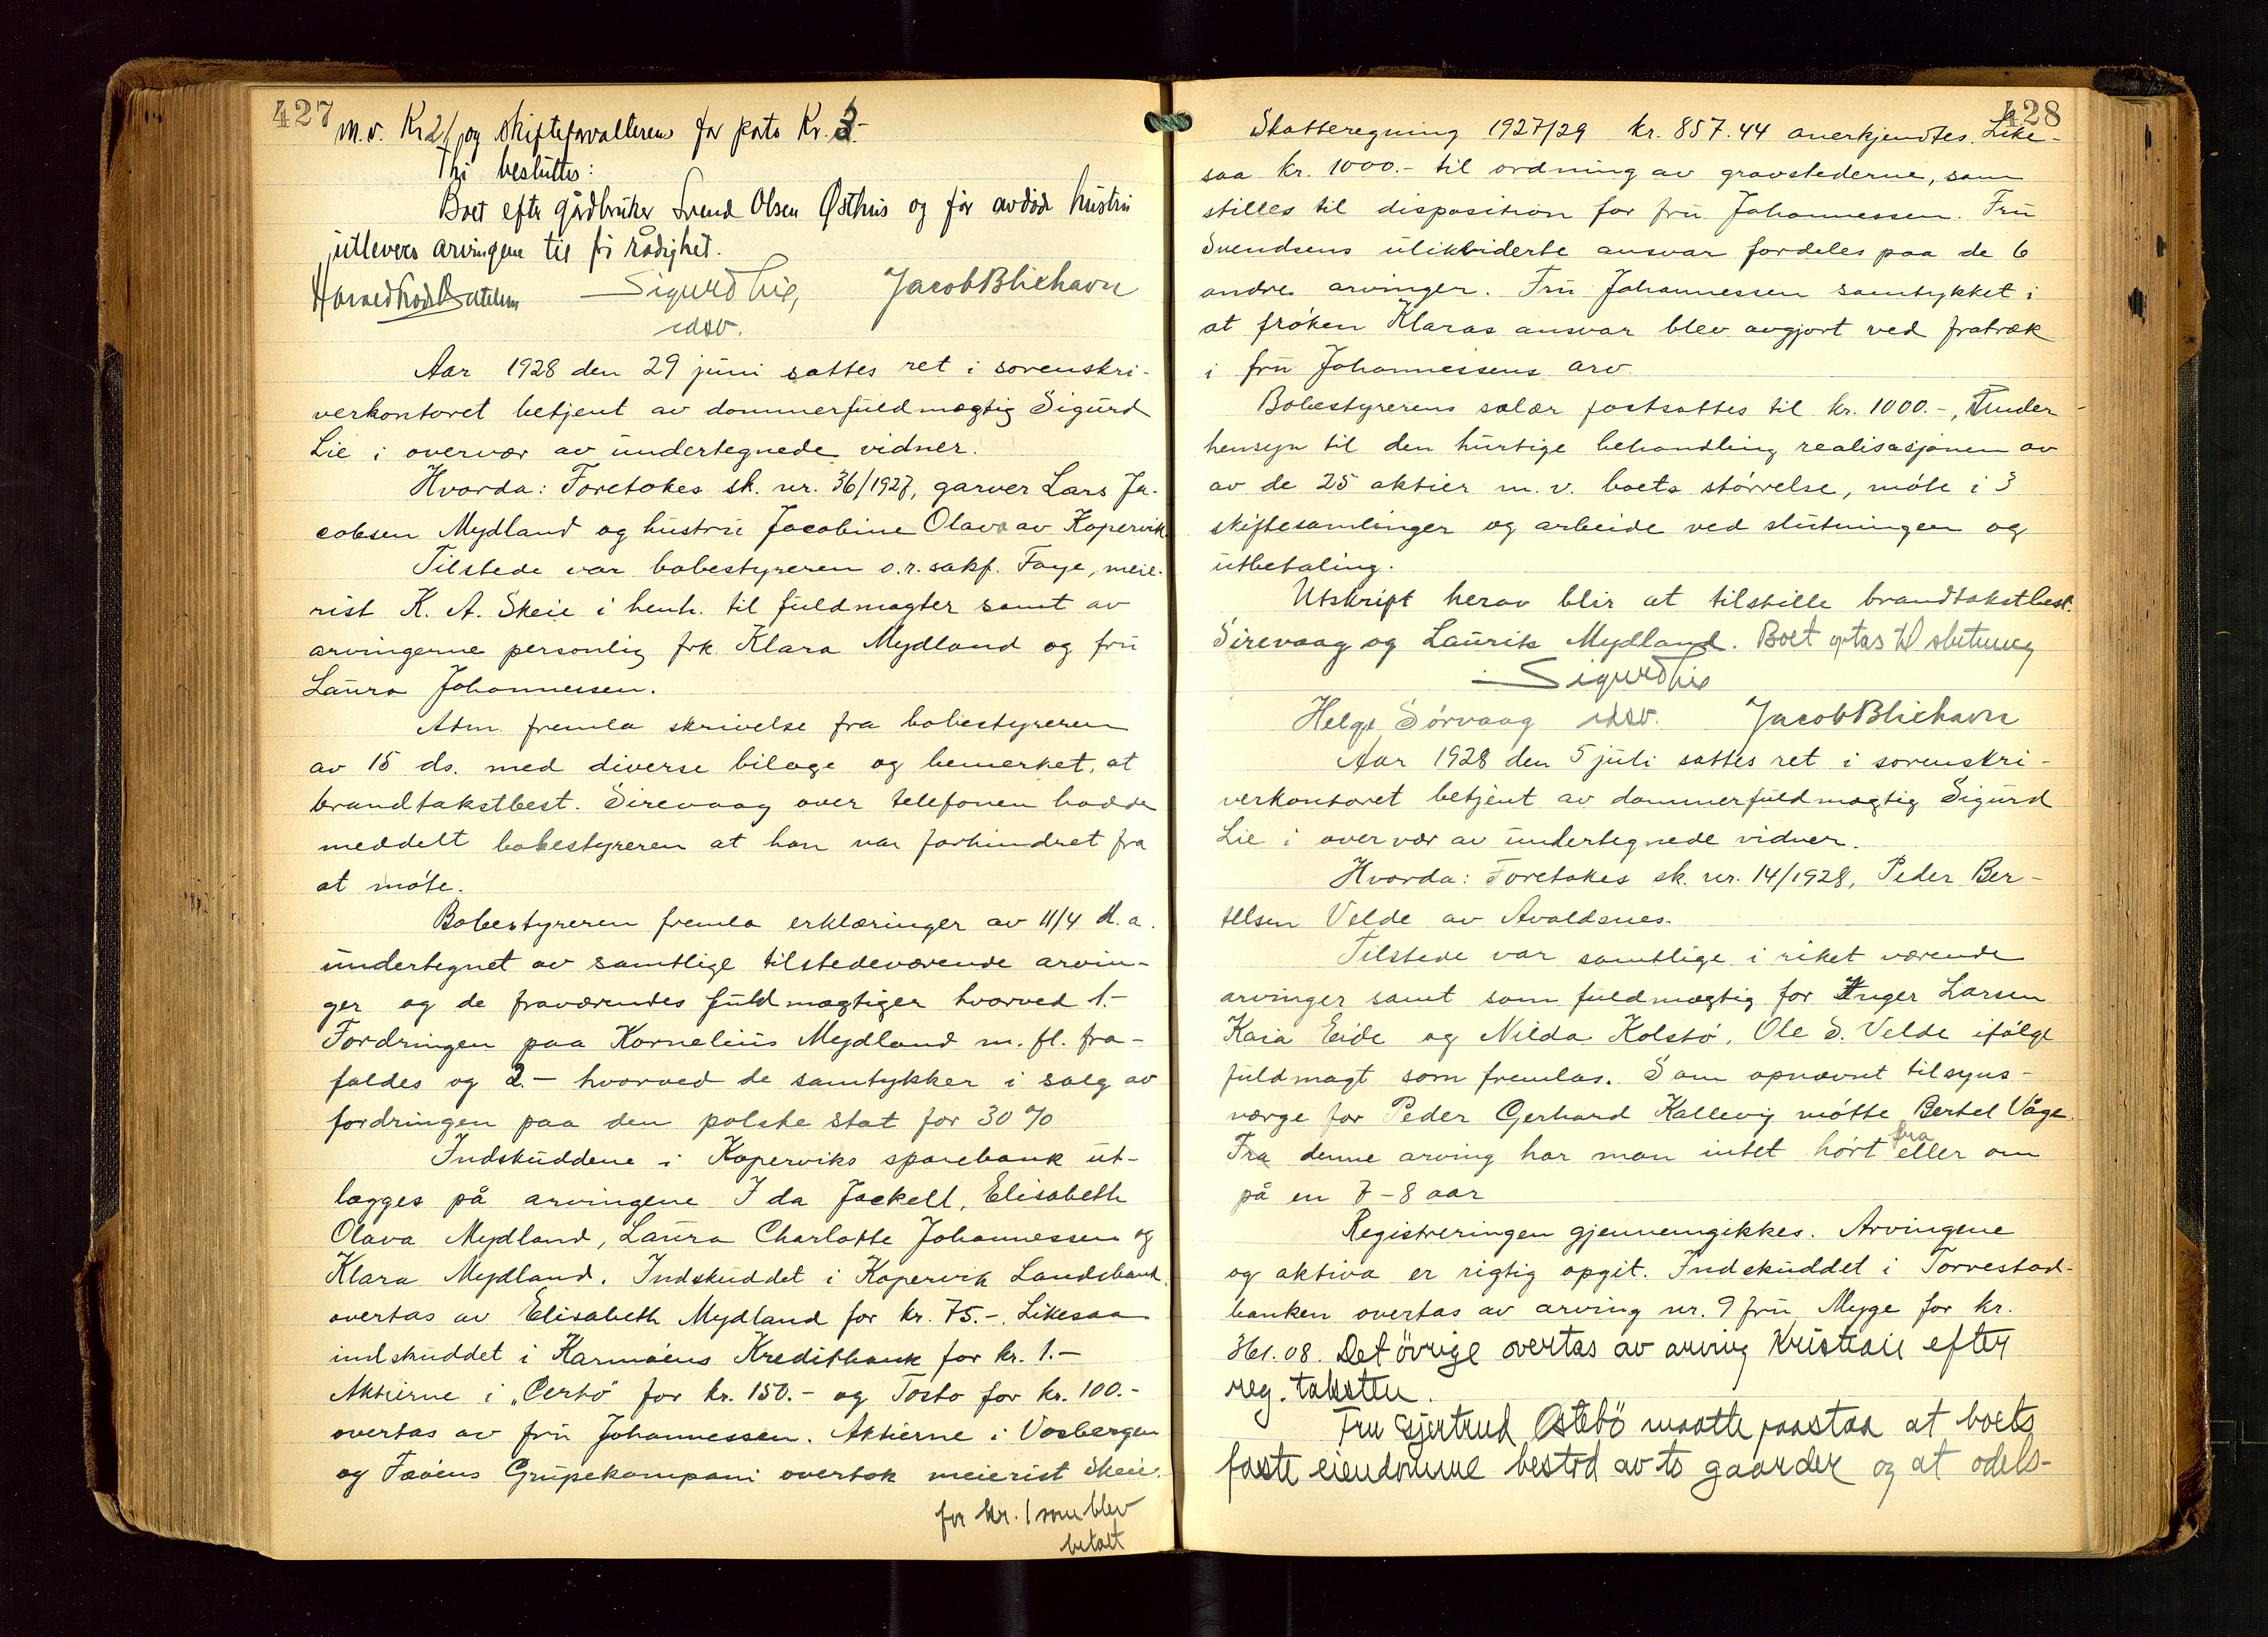 427
m.v. Kr 21 og skifteforvalteren for porto Kr. 3.-
Thi besluttes:
Boet efter gårdbruker Svend Olsen Østhus og før avdöde hustru
utleveres arvingene til fri rådighet.
Sigurd Lie, Jacob Bliehavn
Aar 1928 den 29 juni sattes ret i sorenskri-
verkontoret betjent av dommerfuldmægtig Sigurd
Lie i overvær av undertegnede vidner.
Hvorda: Foretokes sk. nr. 36/1927, garver Lars Ja-
cobsen Mydland og hustru Jacobine Olava av Kopervik.
Tilstede var bobestyreren o.r.sakf. Faye, meie-
rist K. A. Skeie i henh. til fuldmagter samt av
arvingerne personlig frk. Klara Mydland og fru
Laura Johannessen.
Adm. fremla skrivelse fra bobestyreren
av 15 ds. med diverse bilage og bemerket, at
brandtakstbest. Sirevaag over telefonen hadde
meddelt bobestyreren at han var forhindret fra
at møte.
Bobestyreren fremla erklæringer av 11/4 d.a.
undertegnet av samtlige tilstedeværende arvin-
ger og de fraværendes fuldmægtiger hvorved 1.-
Fordringen paa Kornelius Mydland m. fl. fra-
faldes og 2.- hvorved de samtykker i salg av
fordringen paa den polske stat for 30 %
Indskuddene i Koperviks sparebank ut-
lægges på arvingene Ida Jackell, Elisabeth
Olava Mydland, Laura Charlotte Johannessen og
Klara Mydland. Indskuddet i Kopervik Landsbank
overtas av Elisabeth Mydland for kr. 75.-. Likesaa
indskuddet i Karmøens Kreditbank for kr. 1.-
Aktierne i "Certo" for kr. 150.- og Tosto for kr. 100.-
overtas av fru Johannessen. Aktierne i Vosbergen
og Fæøens Grupekompani overtok meierist Skeie
for kr. 1 som blev
betalt
428
Skatteregning 1927/29 kr. 857.44 anerkjendtes. Like-
saa kr. 1000.- til ordning av gravstederne, som
stilles til disposition for fru Johannessen. Fru
Svendsens ulikviderte ansvar fordeles paa de 6
andre arvinger. Fru Johannessen samtykket i
at frøken Klaras ansvar blev avgjort ved fratræk
i fru Johannessens arv.
Bobestyrerens salær fastsattes til kr. 1000.-, under
hensyn til den hurtige behandling realisasjonen av
av de 25 aktier m. v. boets størrelse, møte i 3
skiftesamlinger og arbeide ved slutningen og
utbetaling.
Utskript herav blir at tilstille brandtakstbest.
Sirevaag og Laurits Mydland. Boet optas til slutning
Sigurd Lie
Helge Sørvaag Jacob Bliehavn
Aar 1928 den 5 juli sattes ret i sorenskri-
verkontoret betjent av dommerfuldmægtig Sigurd
Lie i overvær av undertegnede vidner.
Hvorda: Foretokes sk. nr. 14/1928, Peder Ber-
telsen Velde av Avaldsnes.
Tilstede var samtlige i riket værende
arvinger samt som fuldmægtig for Inger Larsen
Kaia Eide og Nilda Kolstø, Ole S. Velde ifølge
fuldmagt som fremlas. Som opnævnt tilsyns-
værge for Peder Gerhard Kallevig møtte Bertel Våge.
Fra denne arving har man intet hørt fra eller om
på en 7-8 aar
Registreringen gjennemgikkes. Arvingene
og aktiva er rigtig opgit. Indskuddet i Torvestad-
banken overtas av arving nr. 9 fru Myge for kr.
361.08. Det övrige overtas av arving Kristian efter
reg. taksten.
Fru Gjertrud Østebö maatte paastaa at boets
faste eiendomme bestod av to gaarder og at odels-